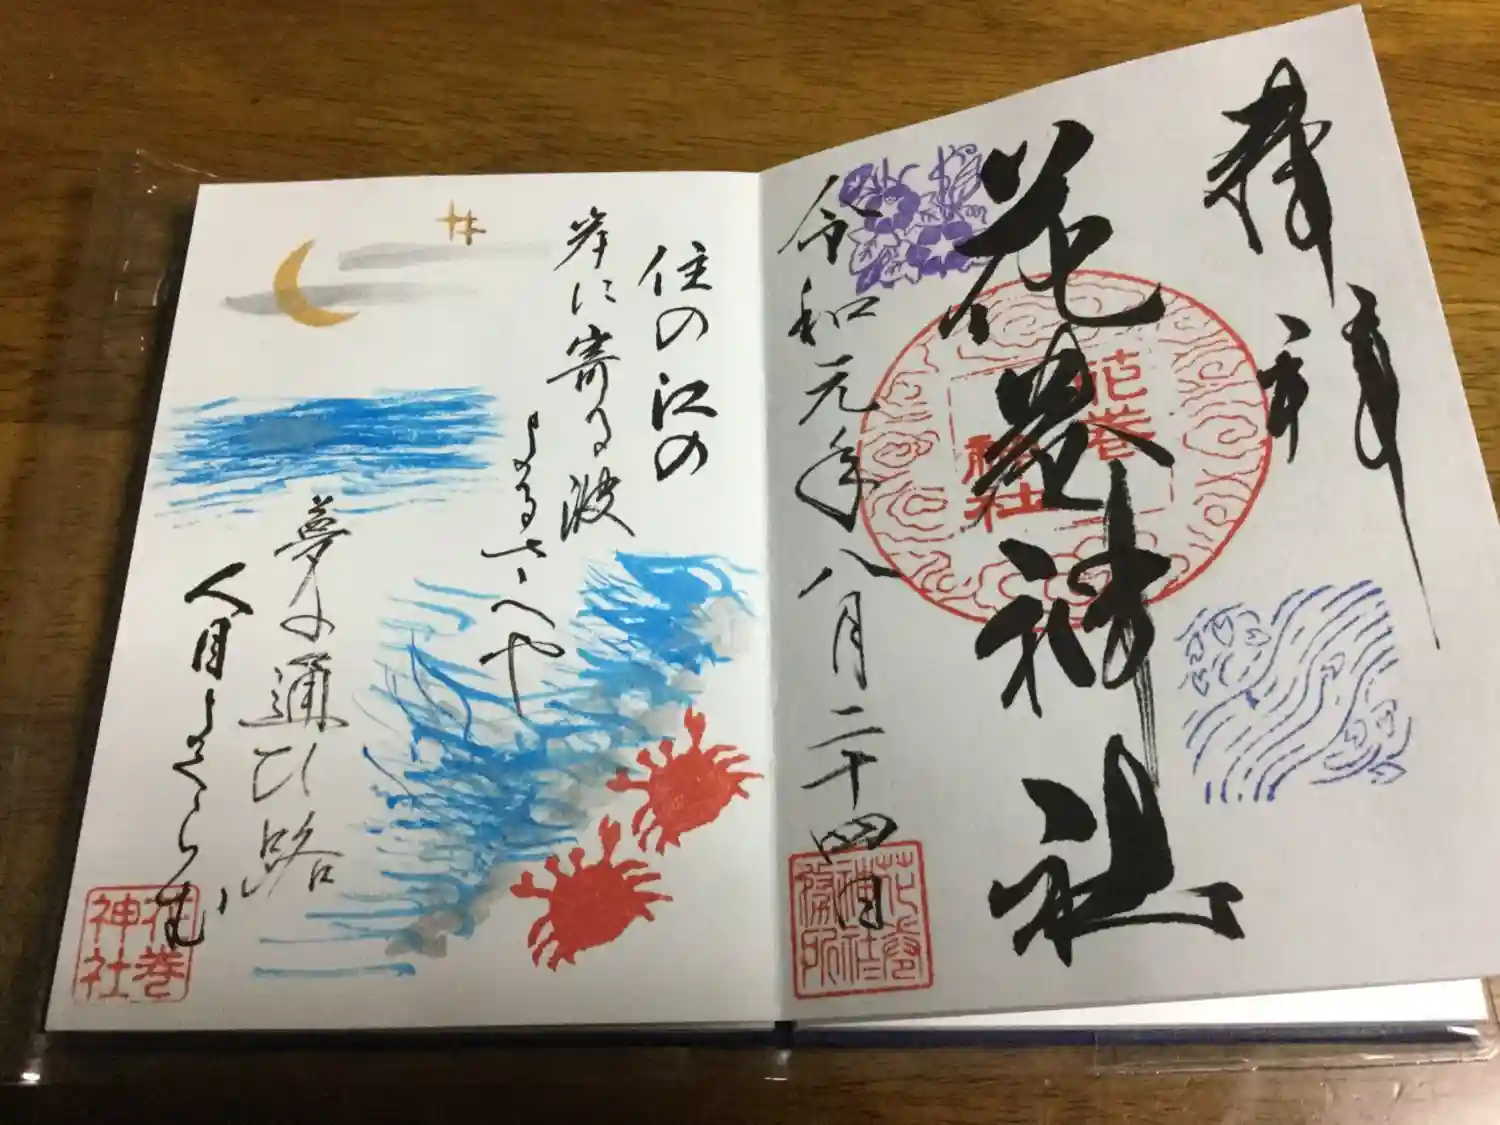 奉拝
花巻神社
花巻
神社
令和元年八月二十四日
花巻
神社
務所
住の江の
岸に寄る波
よるさへや
夢の通ひ路
人目よくらむ
花巻
神社